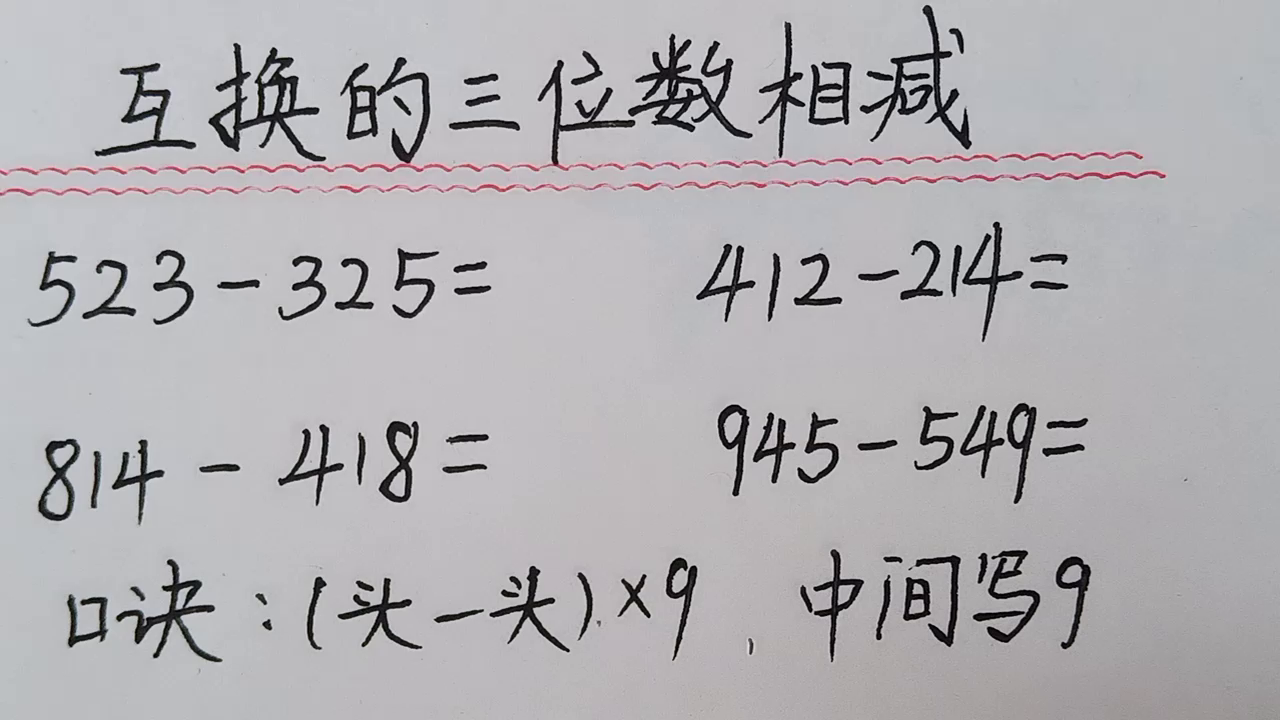 互换的三位数相减
523-325= 412-214=
814-418= 945-549=
口诀:(头-头)×9,中间写9